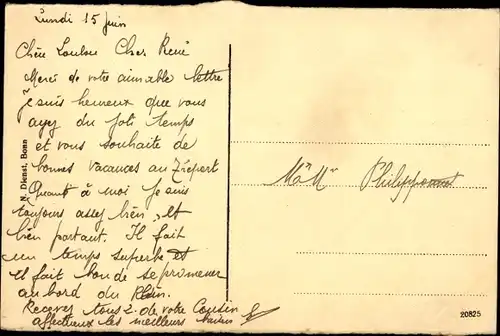 Lundi 15 Juin
Chère Loulou Cher René
Merci de votre aimable lettre
je suis heureux que vous
ayez du joli temps
et vous souhaite de
bonnes vacances au Tréport
Quant à moi je suis
toujours assez bien et
bien portant. Il fait
un temps superbe et
il fait bon de se promener
au bord du Rhin.
Recevez tous 2 de votre Cousin
affectueux les meilleurs baisers
N. Dienst, Bonn
Philippon
20825